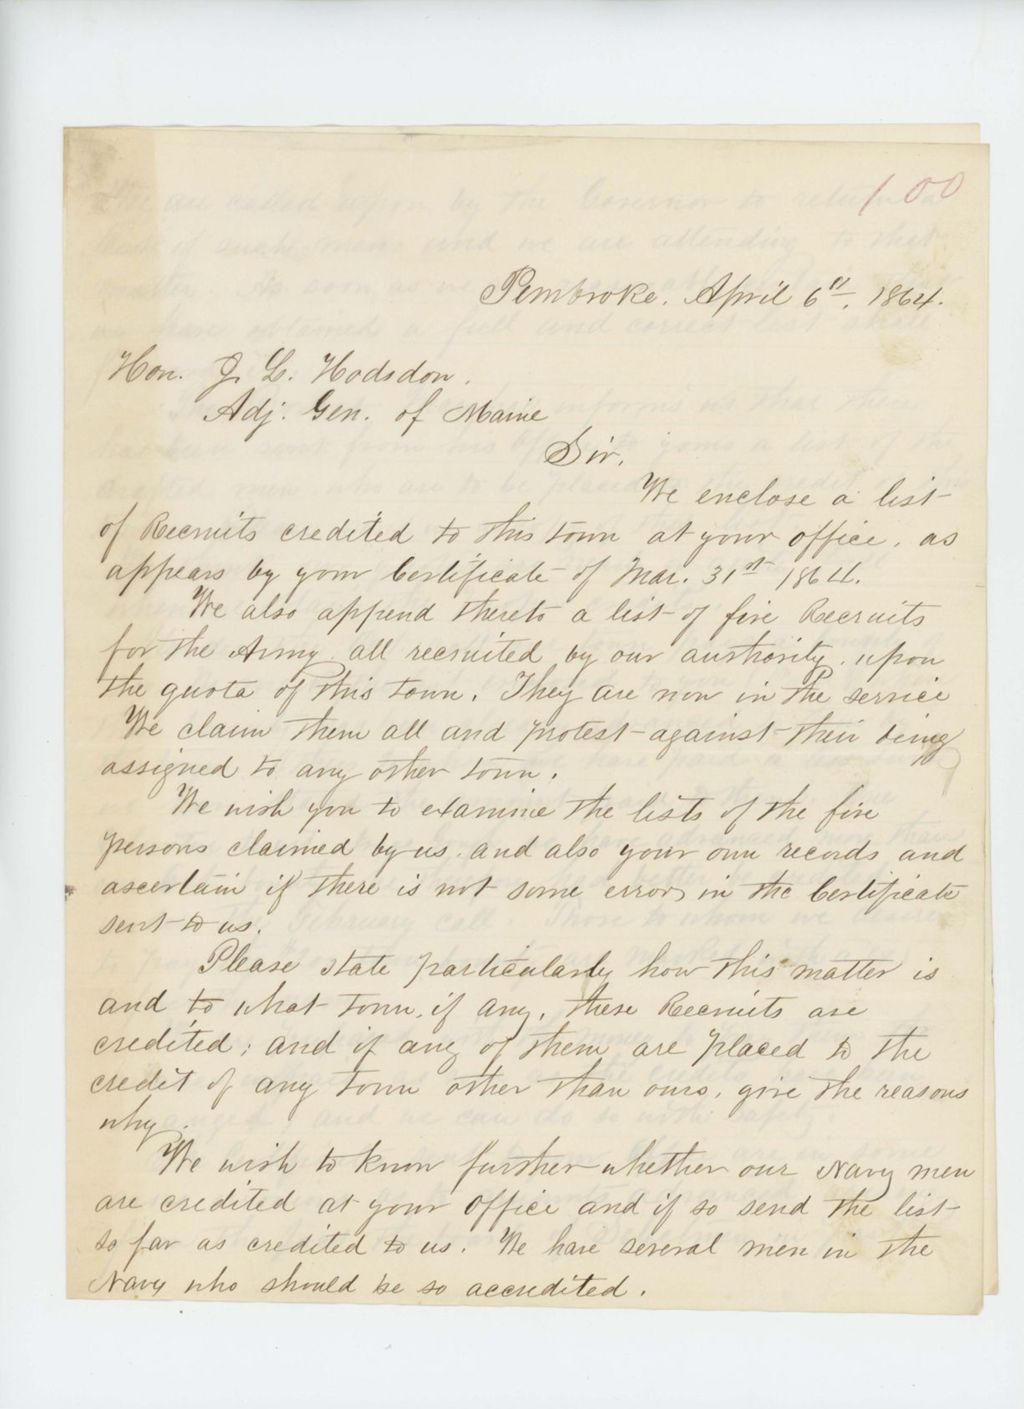 100
Pembroke. April 6th, 1864.
Hon. J. L. Hodsdon.
Adj. Gen. of Maine
Sir,
We enclose a list
of Recruits credited to this town at your office, as
appears by your Certificate of Mar. 31st 1864.
We also append thereto a list of five Recruits
for the Army all recruited by our authority, upon
the quota of this town. They are now in the service
We claim them all and protest against their being
assigned to any other town.
We wish you to examine the lists of the five
persons claimed by us, and also your own records and
ascertain if there is not some error, in the Certificate
sent to us.
Please state particularly how this matter is
and to what town, if any, these Recruits are
credited; and if any of them are placed to the
credit of any town other than ours, give the reasons
why.
We wish to know further whether our Navy men
are credited at your office and if so send the list
so far as credited to us. We have several men in the
Navy who should be so accredited.